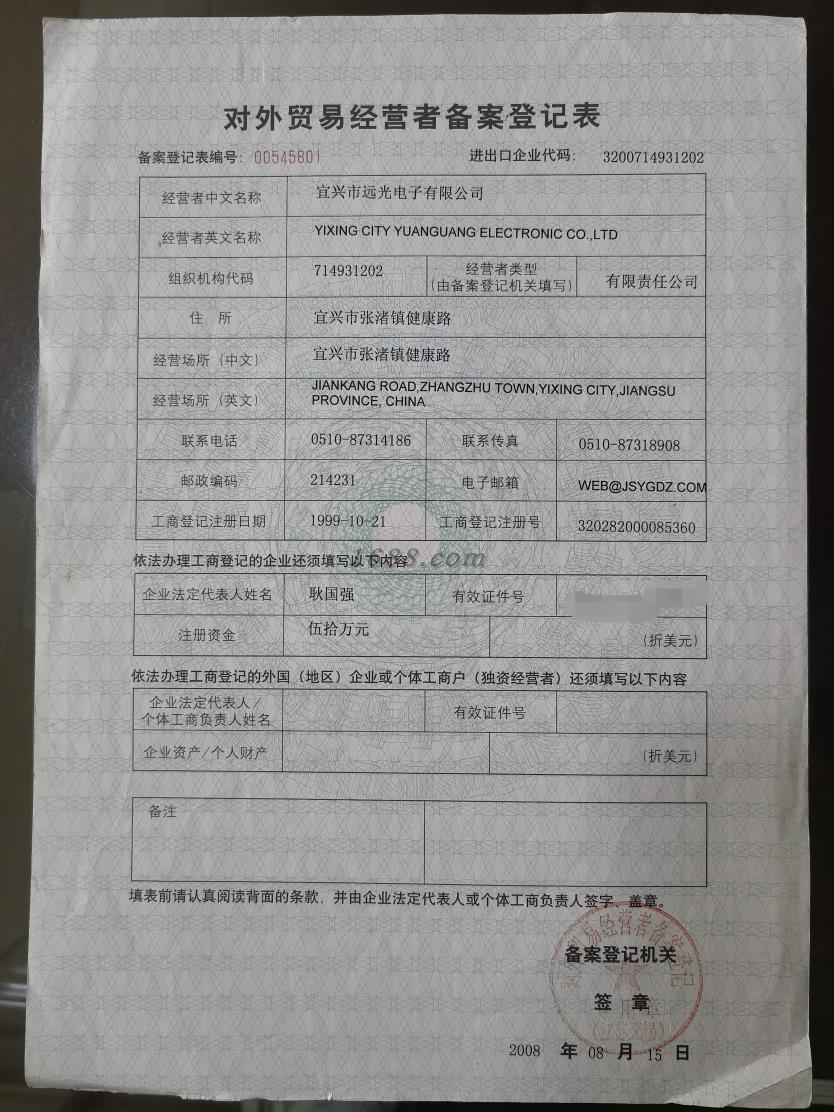 对外贸易经营者备案登记表
备案登记表编号: 00545801 进出口企业代码: 3200714931202
经营者中文名称 宜兴市远光电子有限公司
经营者英文名称 YIXING CITY YUANGUANG ELECTRONIC CO.,LTD
组织机构代码 714931202 经营者类型 (由备案登记机关填写) 有限责任公司
住 所 宜兴市张渚镇健康路
经营场所 (中文) 宜兴市张渚镇健康路
经营场所 (英文) JIANKANG ROAD,ZHANGZHU TOWN,YIXING CITY,JIANGSU
PROVINCE, CHINA
联系电话 0510-87314186 联系传真 0510-87318908
邮政编码 214231 电子邮箱 WEB@JSYGDZ.COM
工商登记注册日期 1999-10-21 工商登记注册号 320282000085360
1688.com
依法办理工商登记的企业还须填写以下内容
企业法定代表人姓名 耿国强 有效证件号
注册资金 伍拾万元 (折美元)
依法办理工商登记的外国（地区）企业或个体工商户（独资经营者）还须填写以下内容
企业法定代表人/
个体工商负责人姓名 有效证件号
企业资产/个人财产 (折美元)
备注
填表前请认真阅读背面的条款，并由企业法定代表人或个体工商负责人签字、盖章。
备案登记机关
签 章
2008 年 08 月 15 日